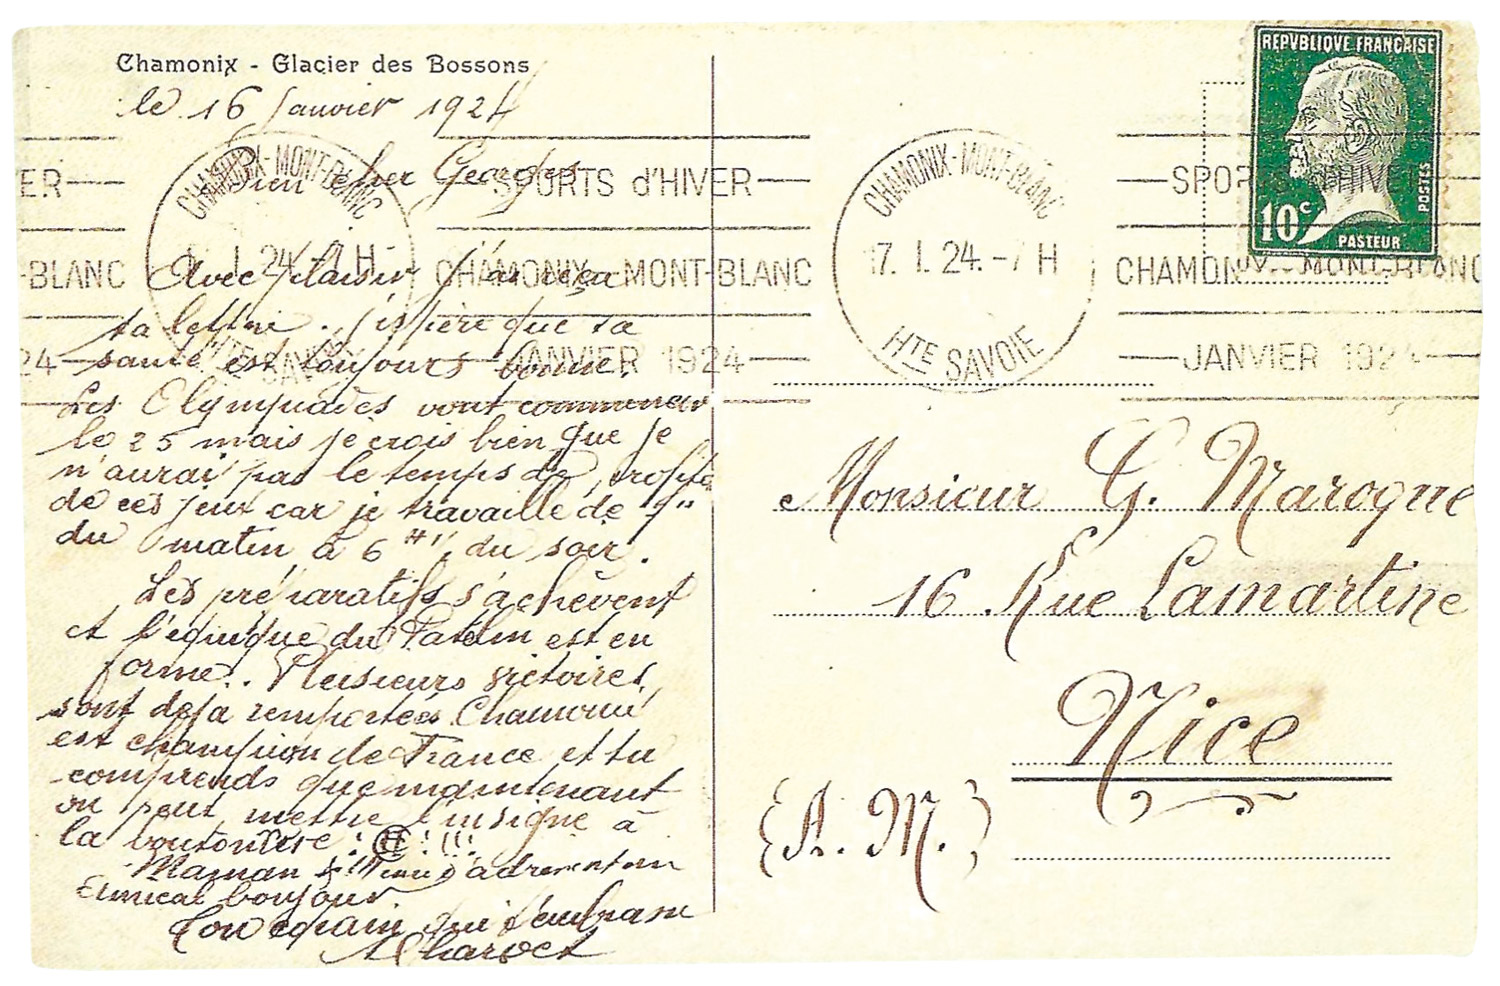 Chamonix - Glacier des Bossons
le 16 Janvier 1924
Bien cher Georges
Avec plaisir j'ai reçu
ta lettre. J'espère que ta
santé est toujours bonne.
Les Olympiades vont commencer
le 25 mais je crois bien que je
n'aurai pas le temps de profiter
de ces jeux car je travaille de 9"
du matin à 6 H" du soir.
Les préparatifs s'achèvent
et l'équipe du Patelin est en
forme.. Plusieurs victoires
sont déjà remportées Chamonix
est champion de France et tu
comprends que maintenant
on peut mettre l'insigne à
la boutonnière ! CH ! !!!
Maman & t'adressent un
amical bonjour
Ton copain qui t'embrasse
Charvet
REPVBLIQVE FRANÇAISE
POSTES
10c
PASTEUR
CHAMONIX-MONT-BLANC
17. 1. 24. -7 H
HTE SAVOIE
SPORTS d'HIVER
CHAMONIX-MONT-BLANC
JANVIER 1924
CHAMONIX-MONT-BLANC
1. 24 -7 H
HTE SAVOIE
SPORTS d'HIVER
CHAMONIX-MONT-BLANC
JANVIER 1924
ER
-BLANC
24
Monsieur G. Marogne
16 Rue Lamartine
Nice
(A. M.)